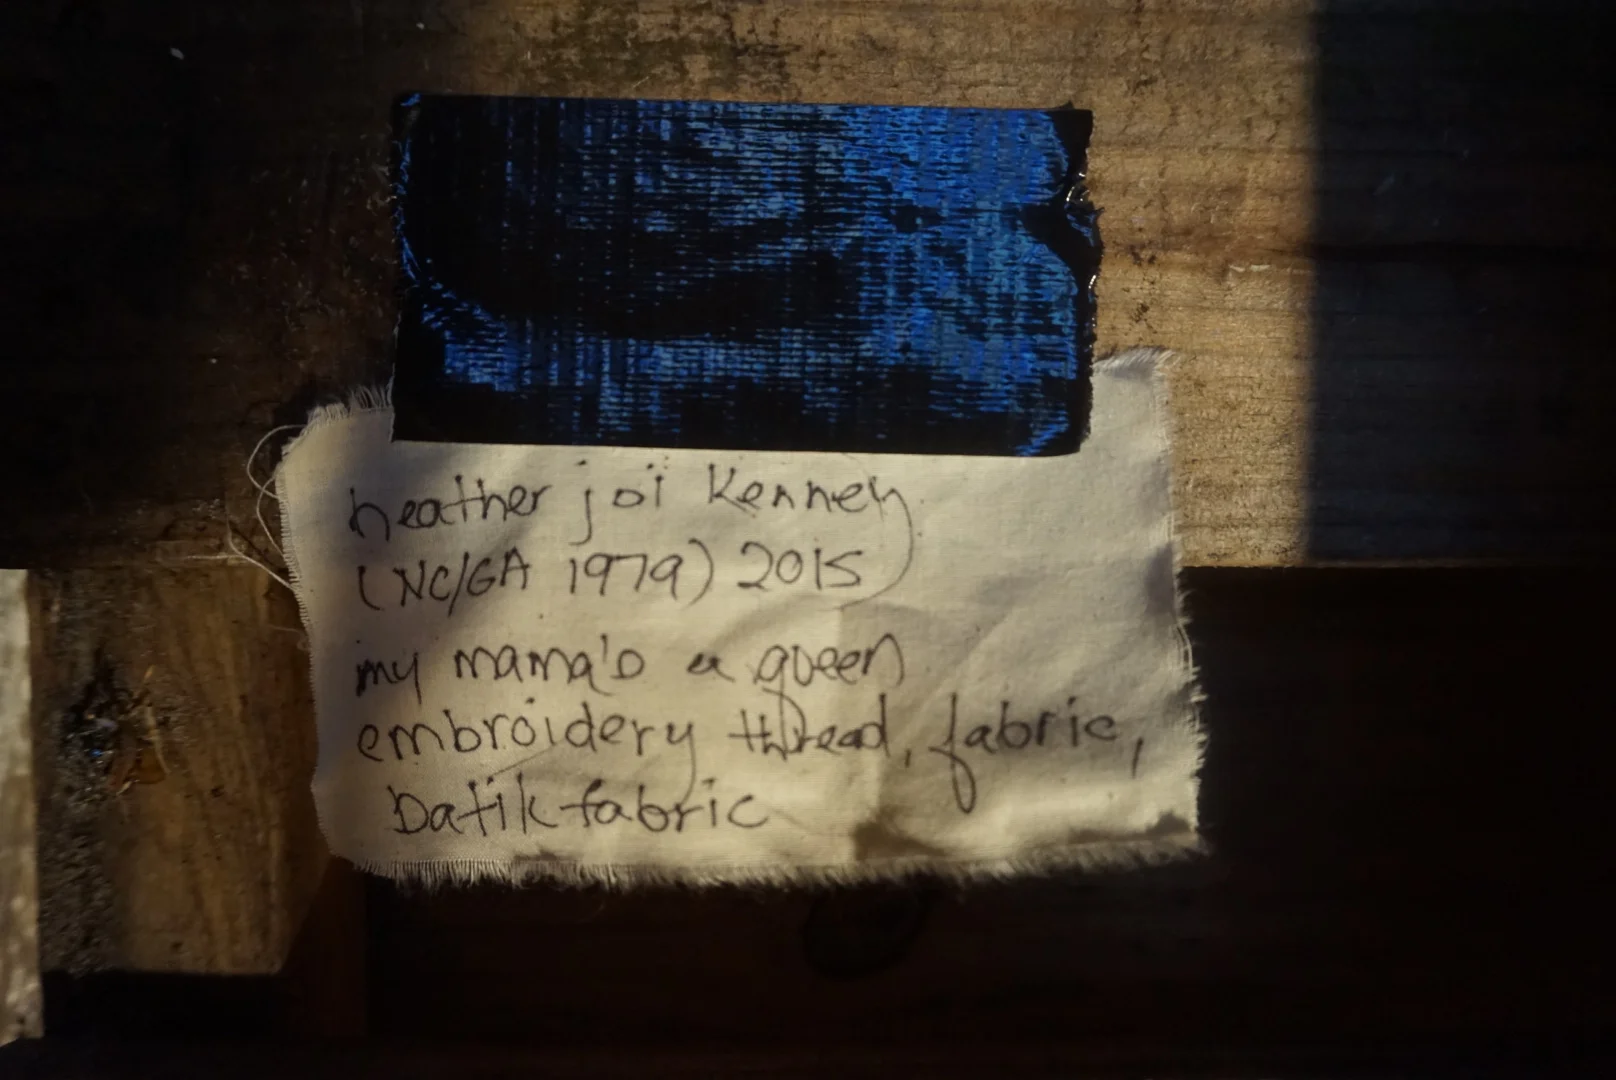 heather joï Kenney
(NC/GA 1979) 2015
my mama's a queen
embroidery thread, fabric,
batik fabric